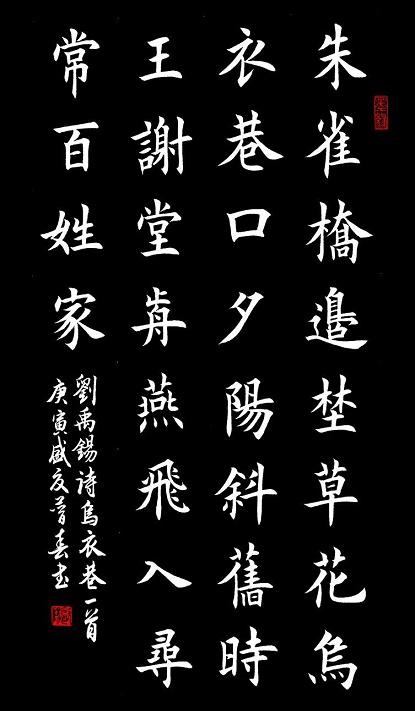 朱雀橋邉埜草花烏
衣巷口夕陽斜舊時
王謝堂歬燕飛入尋
常百姓家
劉禹錫詩烏衣巷一首
庚寅盛夏春书